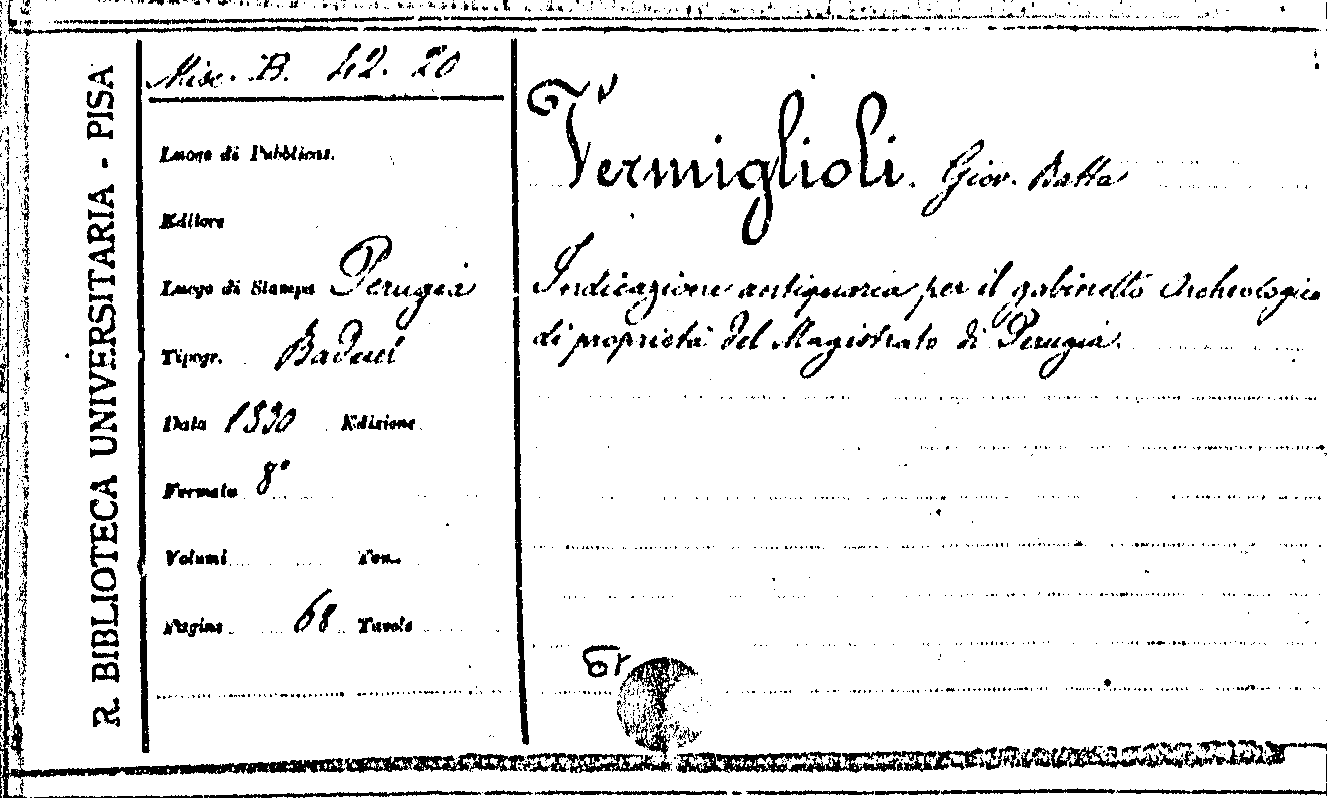 R. BIBLIOTECA UNIVERSITARIA - PISA
Misc. B. 42. 20
Luogo di Pubblicaz.
Editore
Luogo di Stampa Perugia
Tipogr. Baduel
Data 1830 Edizione
Formato 8°
Volumi Tom.
Pagine 68 Tavole
Vermiglioli. Giov. Batta
Indicazione antiquaria per il gabinetto Archeologico
di proprietà del Magistrato di Perugia.